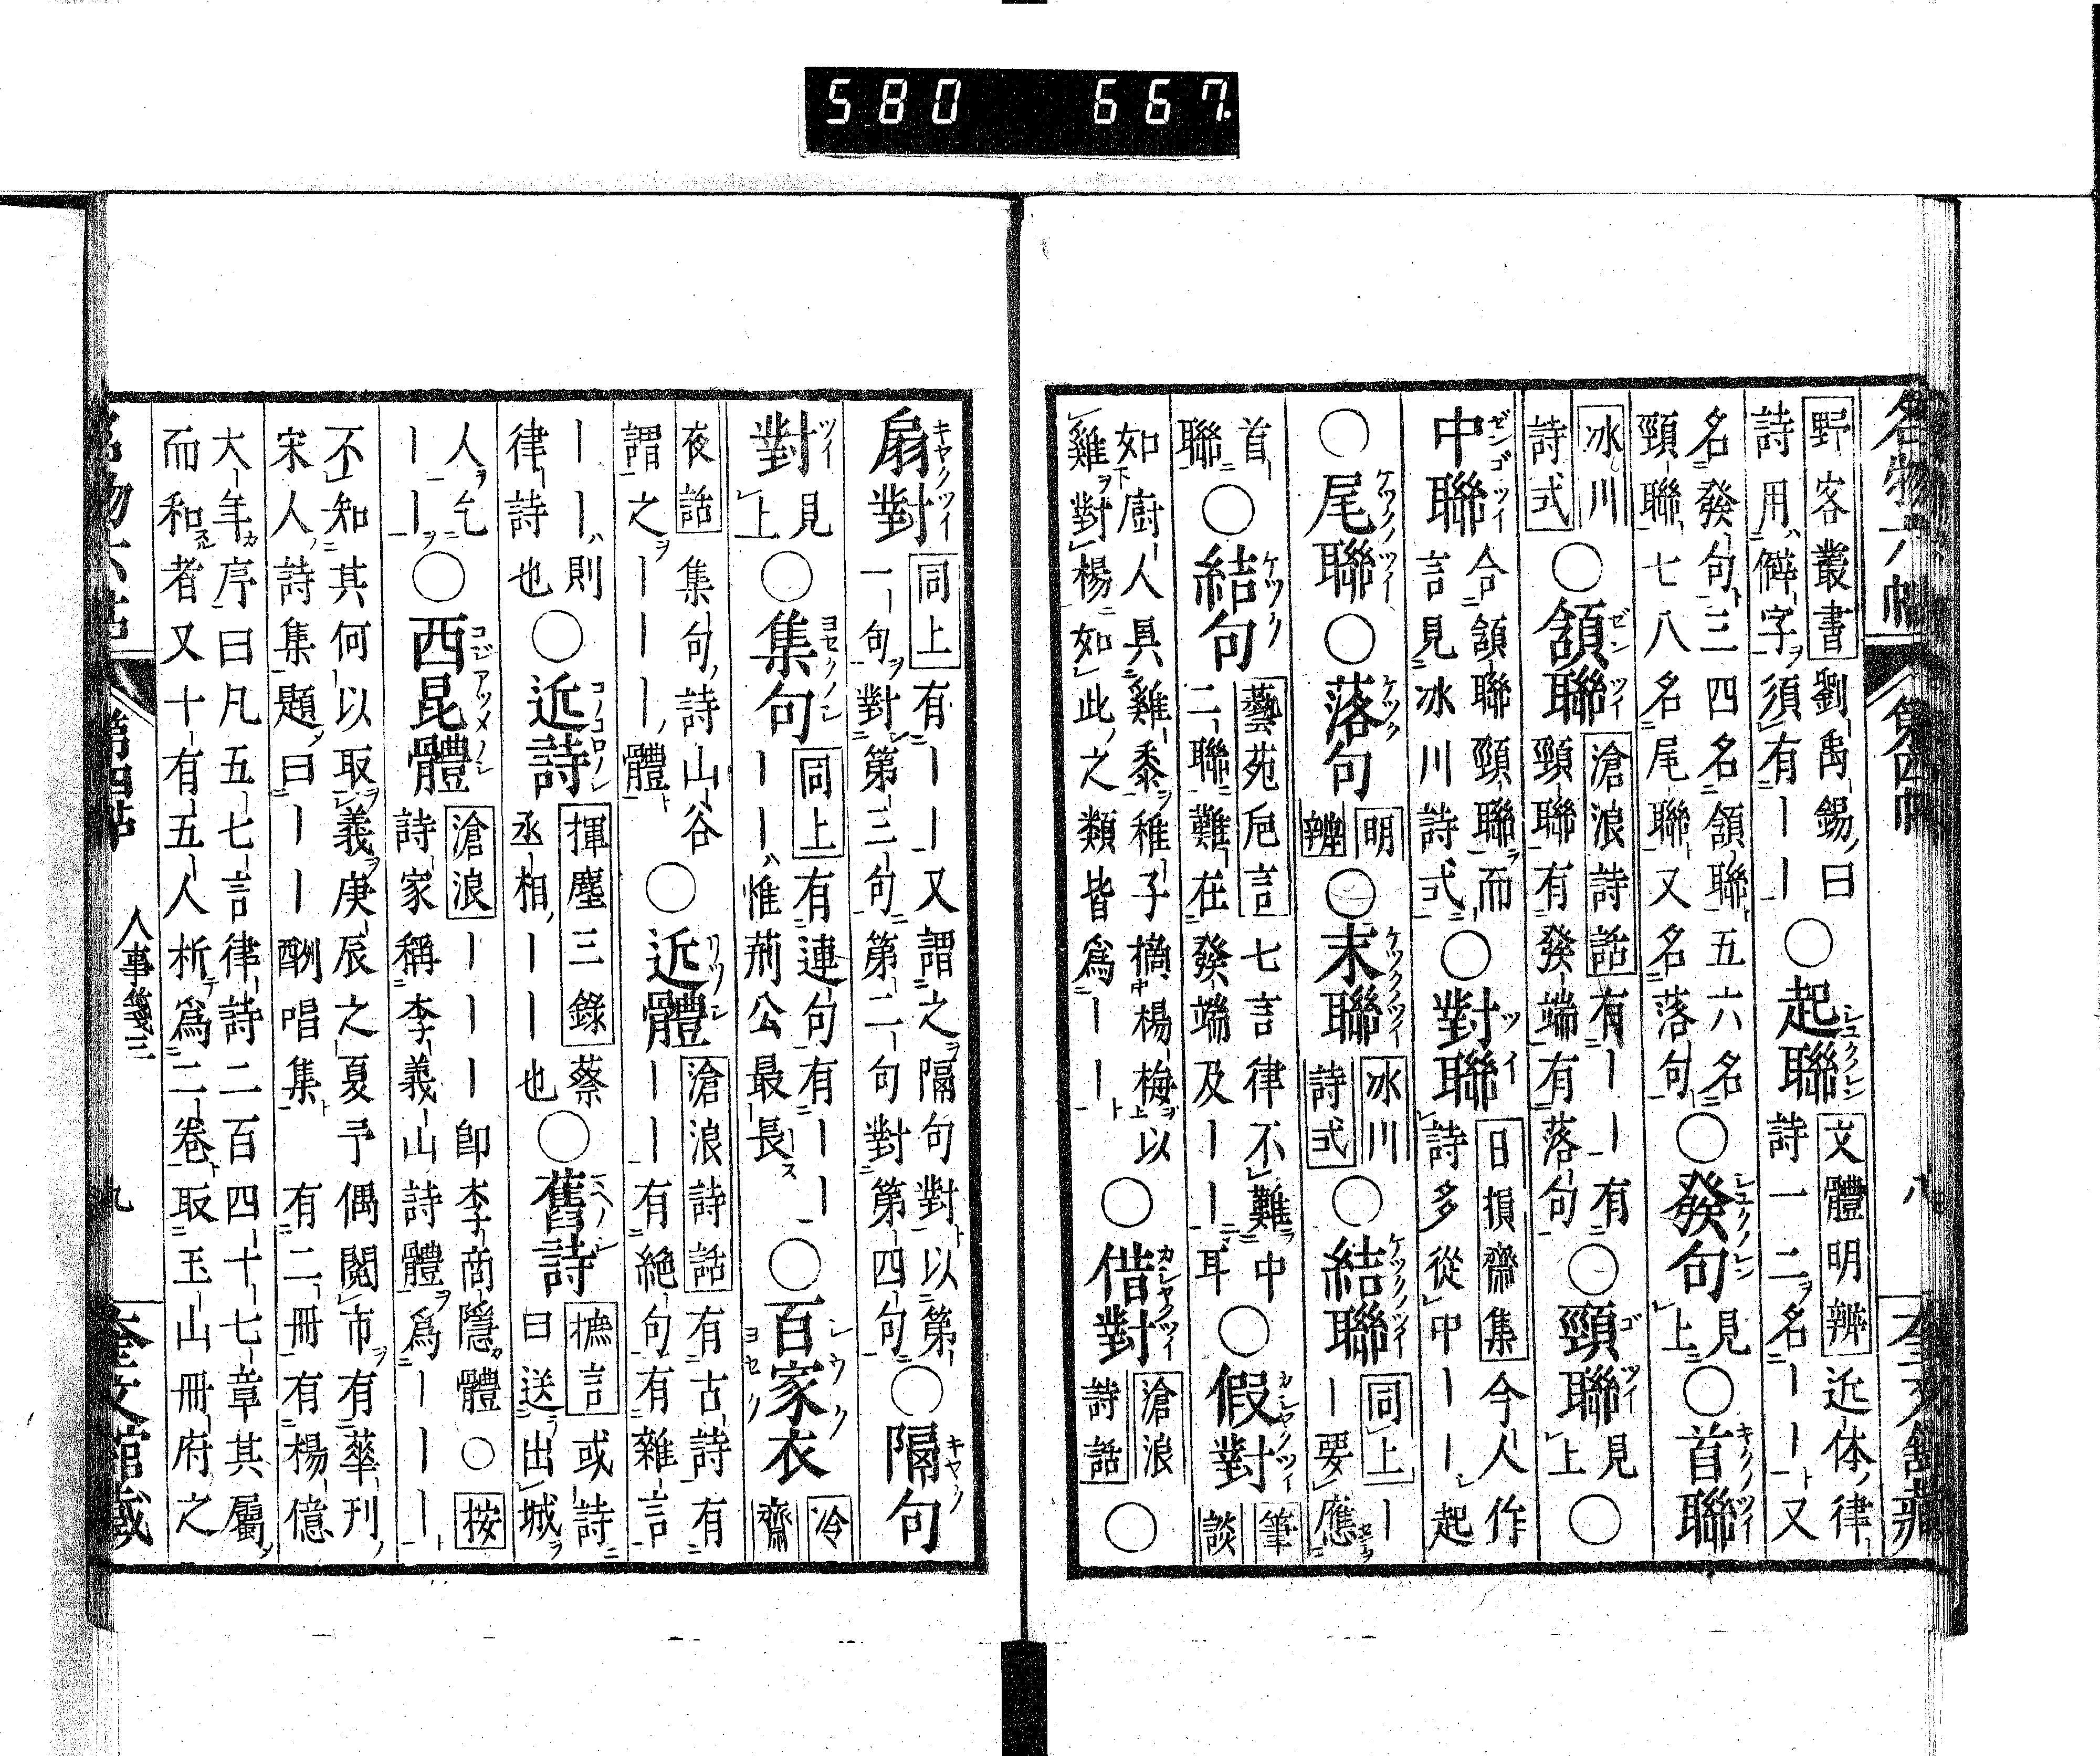 580 667.
名物六帖 第四帖 八 奎文館藏
野客叢書 劉禹錫曰
詩用僻字須有――
○起聯 文體明辨 近体律
詩一二名――又
名發句三四名頷聯五六名
頸聯七八名尾聯又名落句
○發句 見上 ○首聯
冰川詩式
○頷聯 滄浪詩話 有――有
頸聯有發端有落句
○頸聯 見上 ○
中聯 合頷聯頸聯而
言見冰川詩式
○對聯 日損齋集 今人作
詩多從中――起
○尾聯 ○落句 明辨 ○末聯 冰川詩式 ○結聯 同上 ―
―要應
首聯 ○結句 藝苑巵言 七言律不難中
二聯難在發端及――耳
○假對 筆談
如廚人具雞黍稚子摘楊梅以
雞對楊如此之類皆爲――
○借對 滄浪詩話 ○
扇對 同上 有――又謂之隔句對以第
一句對第三句第二句對第四句
○隔句
對 見上 ○集句 同上 有連句有――
――惟荊公最長
○百家衣 冷齋
夜話 集句詩山谷
謂之―――體
○近體 滄浪詩話 有古詩有
――有絶句有雜言
――則
律詩也
○近詩 揮塵三錄 蔡
丞相――也
○舊詩 摭言 或詩
曰送出城
人乞
――
○西昆體 滄浪 ―――卽李商隱體 ○按
詩家稱李義山詩體爲―――
不知其何以取義庚辰之夏予偶閱市有華刊
宋人詩集題曰――酬唱集 有二冊有楊億
大年序曰凡五七言律詩二百四十七章其屬
而和者又十有五人析爲二卷取玉山冊府之
名物六帖 第四帖 人事箋三 九 奎文館藏